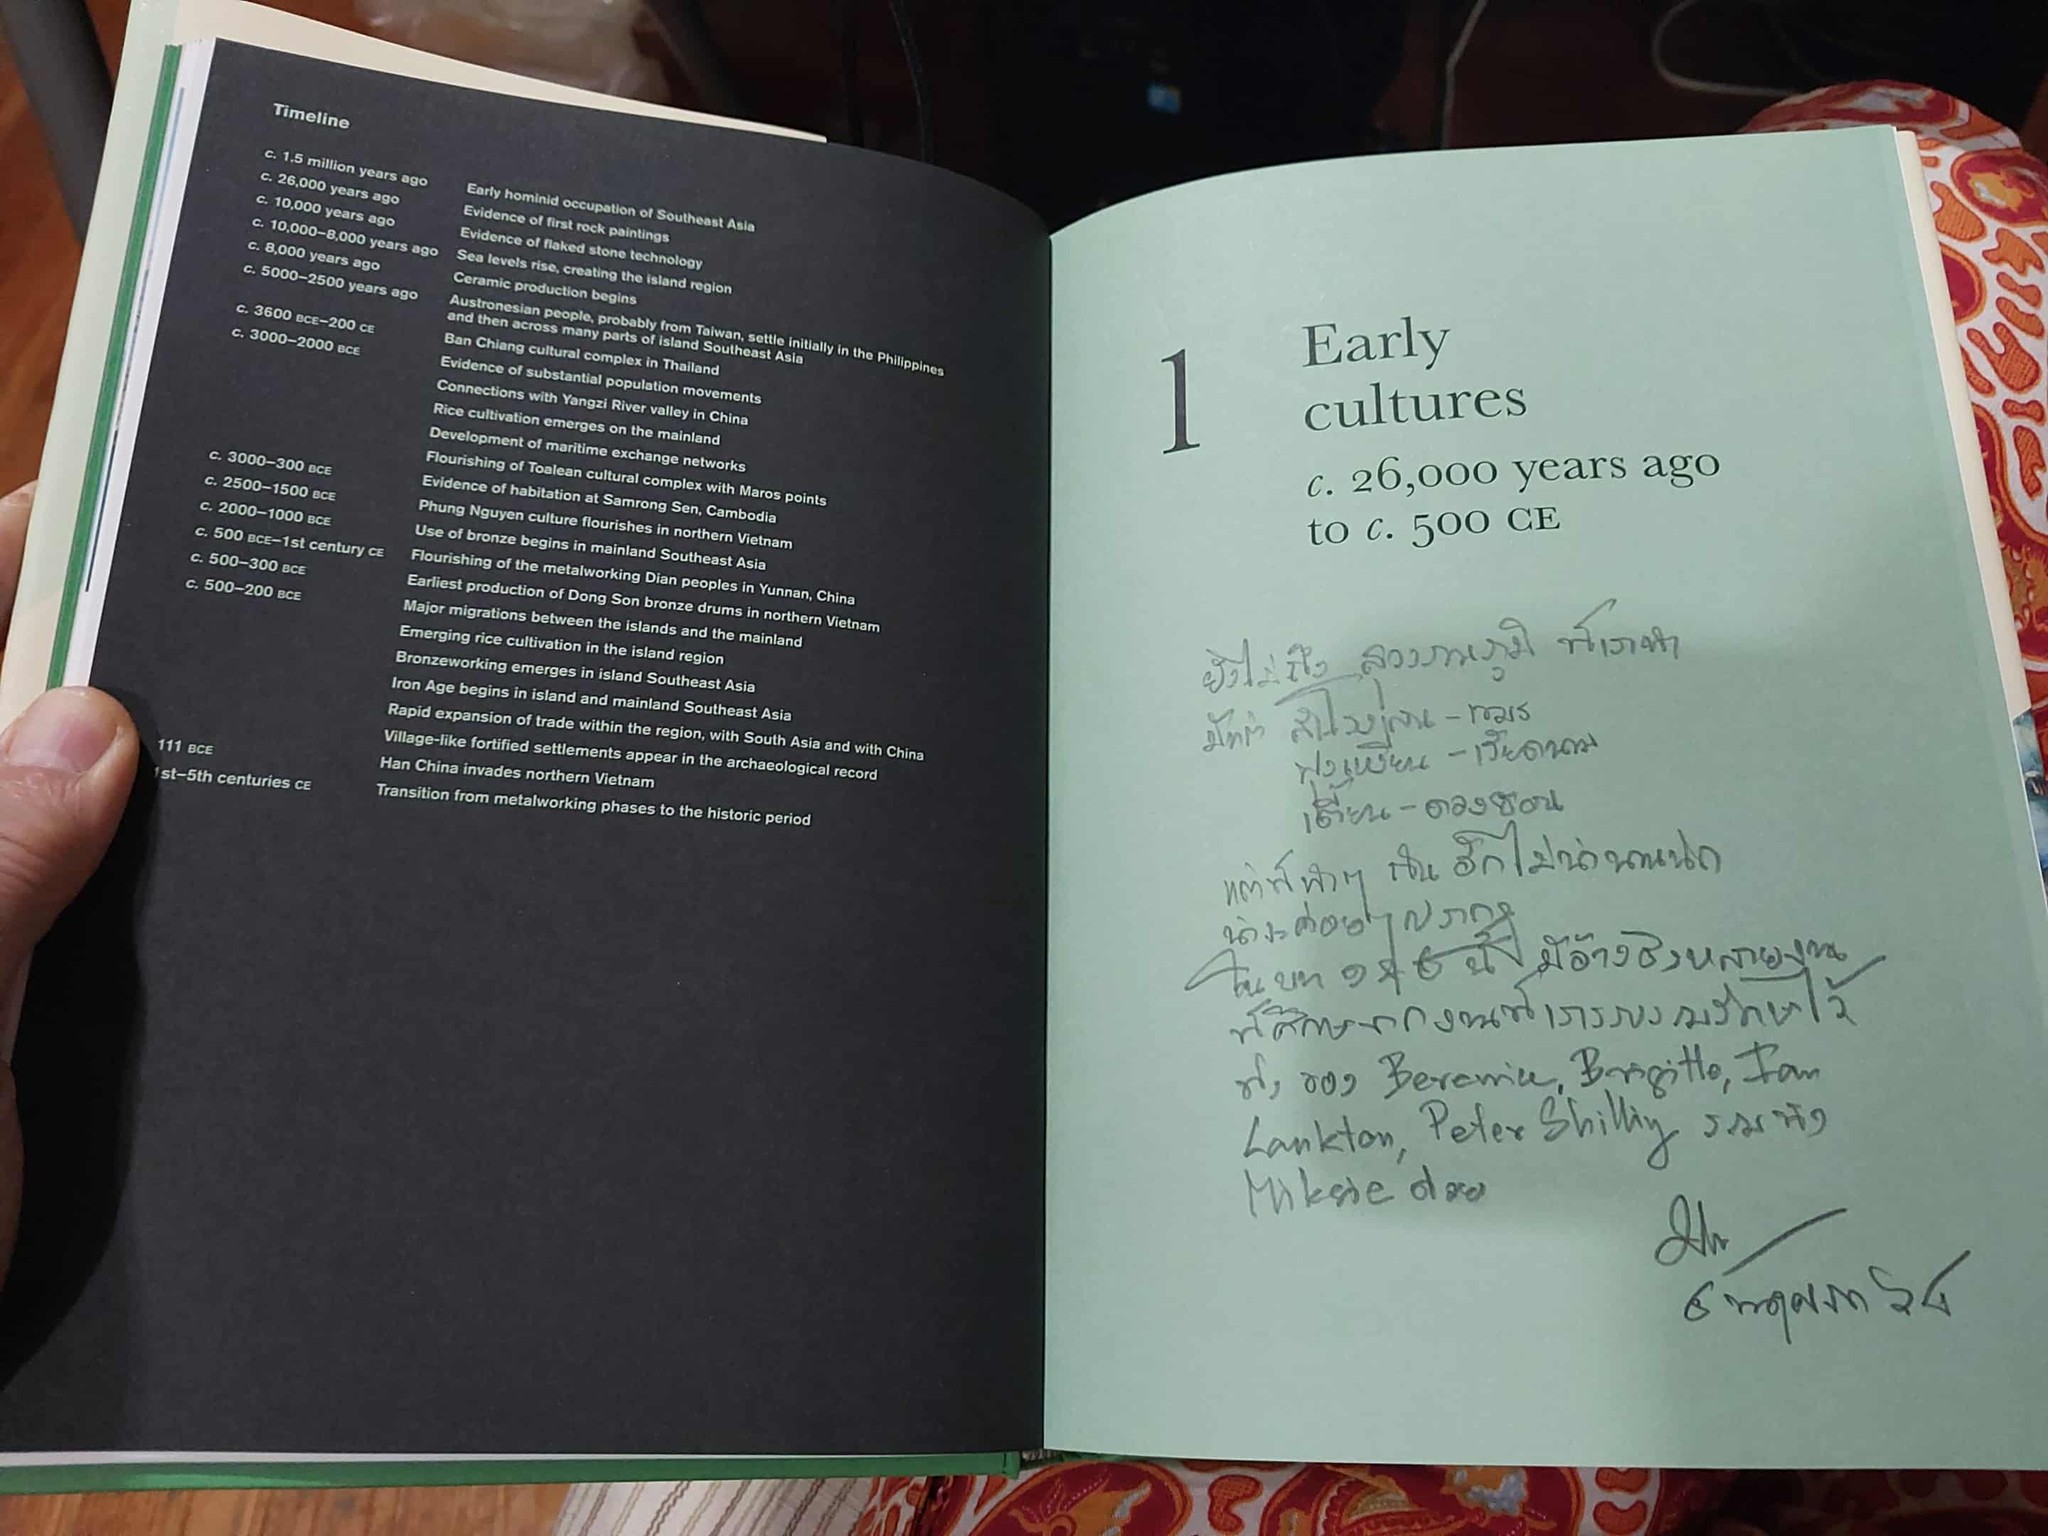 Timeline
c. 1.5 million years ago Early hominid occupation of Southeast Asia
c. 26,000 years ago Evidence of first rock paintings
c. 10,000 years ago Evidence of flaked stone technology
c. 10,000–8,000 years ago Sea levels rise, creating the island region
c. 8,000 years ago Ceramic production begins
c. 5000–2500 years ago Austronesian people, probably from Taiwan, settle initially in the Philippines
and then across many parts of island Southeast Asia
c. 3600 BCE–200 CE Ban Chiang cultural complex in Thailand
c. 3000–2000 BCE Evidence of substantial population movements
Connections with Yangzi River valley in China
Rice cultivation emerges on the mainland
Development of maritime exchange networks
c. 3000–300 BCE Flourishing of Toalean cultural complex with Maros points
c. 2500–1500 BCE Evidence of habitation at Samrong Sen, Cambodia
c. 2000–1000 BCE Phung Nguyen culture flourishes in northern Vietnam
Use of bronze begins in mainland Southeast Asia
c. 500 BCE–1st century CE Flourishing of the metalworking Dian peoples in Yunnan, China
c. 500–300 BCE Earliest production of Dong Son bronze drums in northern Vietnam
c. 500–200 BCE Major migrations between the islands and the mainland
Emerging rice cultivation in the island region
Bronzeworking emerges in island Southeast Asia
Iron Age begins in island and mainland Southeast Asia
Rapid expansion of trade within the region, with South Asia and with China
Village-like fortified settlements appear in the archaeological record
111 BCE Han China invades northern Vietnam
1st–5th centuries CE Transition from metalworking phases to the historic period
1 Early
cultures
c. 26,000 years ago
to c. 500 CE
ยังไม่ถึง สุวรรณภูมิ ที่เราทำ
มีแต่ - เขมร
ฟุงเหงียน - เวียดนาม
เตี้ยน - ดองซอน
อีกไม่น่านานนัก
น่าจะค่อยๆ ปรากฏ
ในบท ๑ นี้ มีอ้างอิงหลายงาน
ที่ศึกษาจากงานที่เรารวบรวมรักษาไว้
ทั้ง ของ Berenice, Brigitte, Ian
Lankton, Peter Shilling รวมทั้ง
Miksic ด้วย
๖ พฤษภา ๖๕